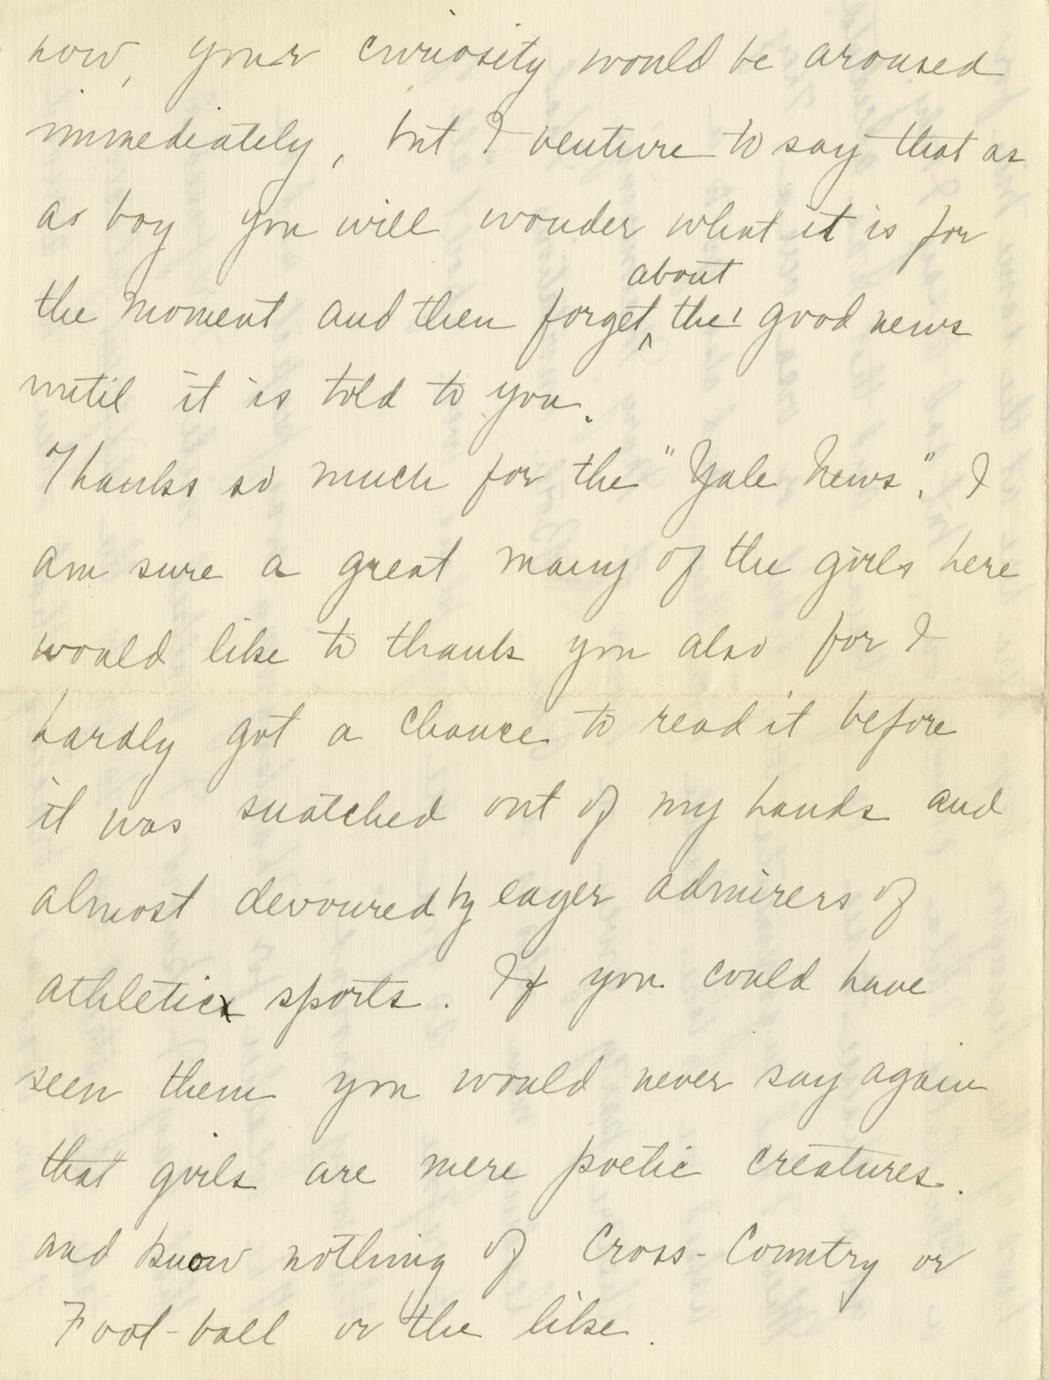 now, your curiosity would be aroused
immediately, but I venture to say that as
as boy you will wonder what it is for
about
the moment and then forget ^ the good news
until it is told to you.
Thanks so much for the "Yale News". I
am sure a great many of the girls here
would like to thank you also for I
hardly got a chance to read it before
it was snatched out of my hands and
almost devoured by eager admirers of
athletic sports. If you could have
seen them you would never say again
that girls are mere poetic creatures.
and know nothing of Cross-Country or
Foot-ball or the like.